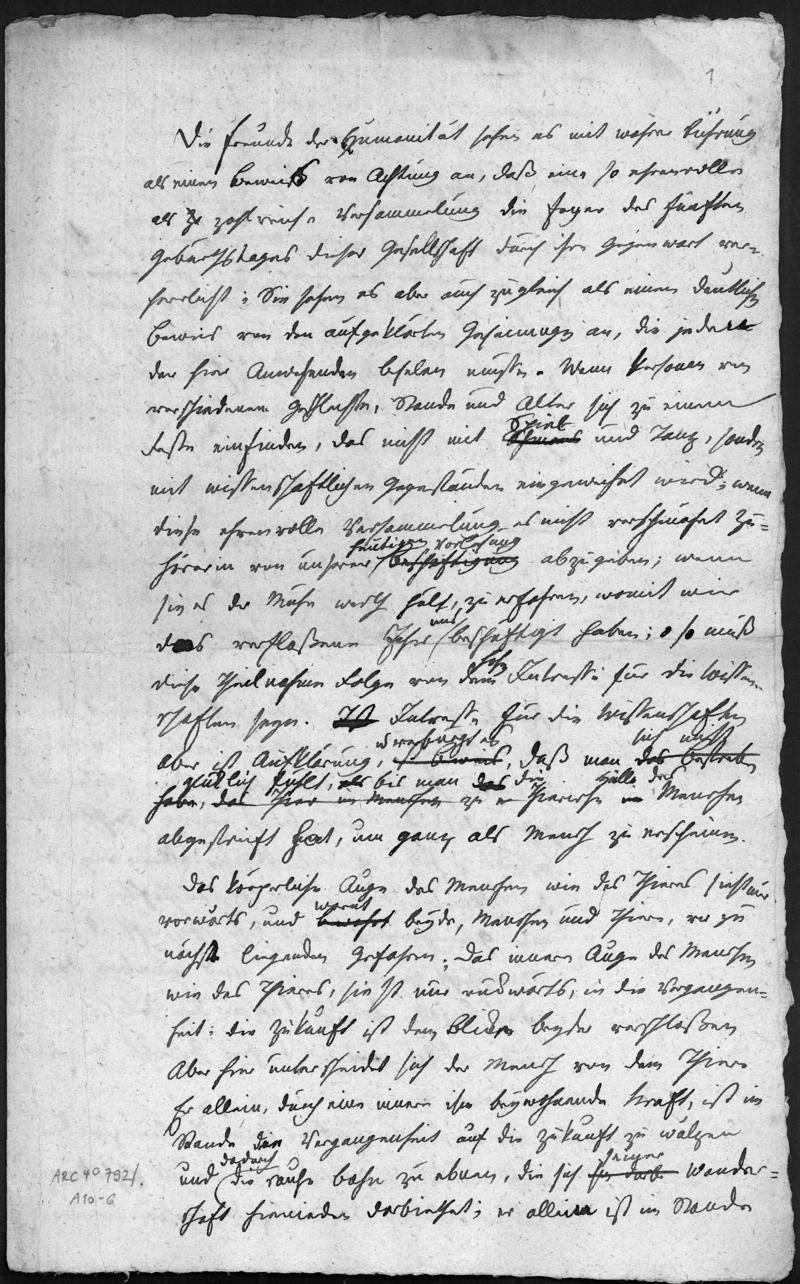 1
Die Freunde der Humanität sehen es mit wahrer Rührung
als einen Beweiß von Achtung an, daß eine so ehrenvolle
als zahlreiche Versammelung die Feyer des fünften
Geburthstages dieser Gesellschaft durch ihre Gegenwart ver-
herrlicht; Sie sehen es aber auch zugleich als einen deutlichen
Beweis von den aufgeklärten Gesinnungen an, die jeden
der hier Anwesenden beselen müssen. Wenn Personen von
verschiedenem Geschlechte, Stande und Alter sich zu einem
Spiel
Feste einfinden, das nicht mit Schmaus und Tanz, sondern
mit wissenschaftlichen Gegenständen eingeweihet wird; wenn
diese ehrenvolle Versammelung es nicht verschmähet Zu-
heutigen Vorlesung
hörerin von unserer Beschäftigung abzugeben; wenn
sie es der Mühe werth hält, zu erfahren, womit wir
uns
das verfloßene Jahr beschäftigt haben; so muß
diese Theilnahme Folge von dem Intresse für die Wissen-
schaften seyn. Intresse für die Wissenschaften
verbürgt es sich nicht
aber ist Aufklärung, daß man das Bestreben
glücklich fühlt, bis man die Hülle des
habe, das Thier im Menschen zu Thierische Menschen
abgestreift hat, um ganz als Mensch zu erscheinen.
Das körperliche Auge des Menschen wie des Thieres sieht nur
warnt
vorwärts, und bewahrt beyde, Menschen und Thiere, vor zu
nächst liegenden Gefahren; Das innere Auge des Menschen
wie des Thieres, sieht nur rückwärts, in die Vergangen-
heit; die Zukunft ist dem Blicke beyder verschloßen
Aber hier unterscheidet sich der Mensch von dem Thiere
Er allein, durch eine innere ihm beywohnende Kraft, ist im
Stande die Vergangenheit auf die Zukunft zu wälzen
dadurch seiner
und die rauhe Bahn zu ebnen, die sich Wander-
schaft hienieden darbiethet; er allein ist im Stande
ARC 4° 792/.
A10-6